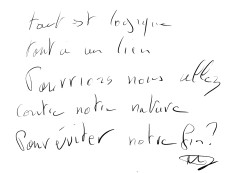 tout est logique
tout a un lien
Pourrions nous aller
contre notre nature
Pour éviter notre fin?